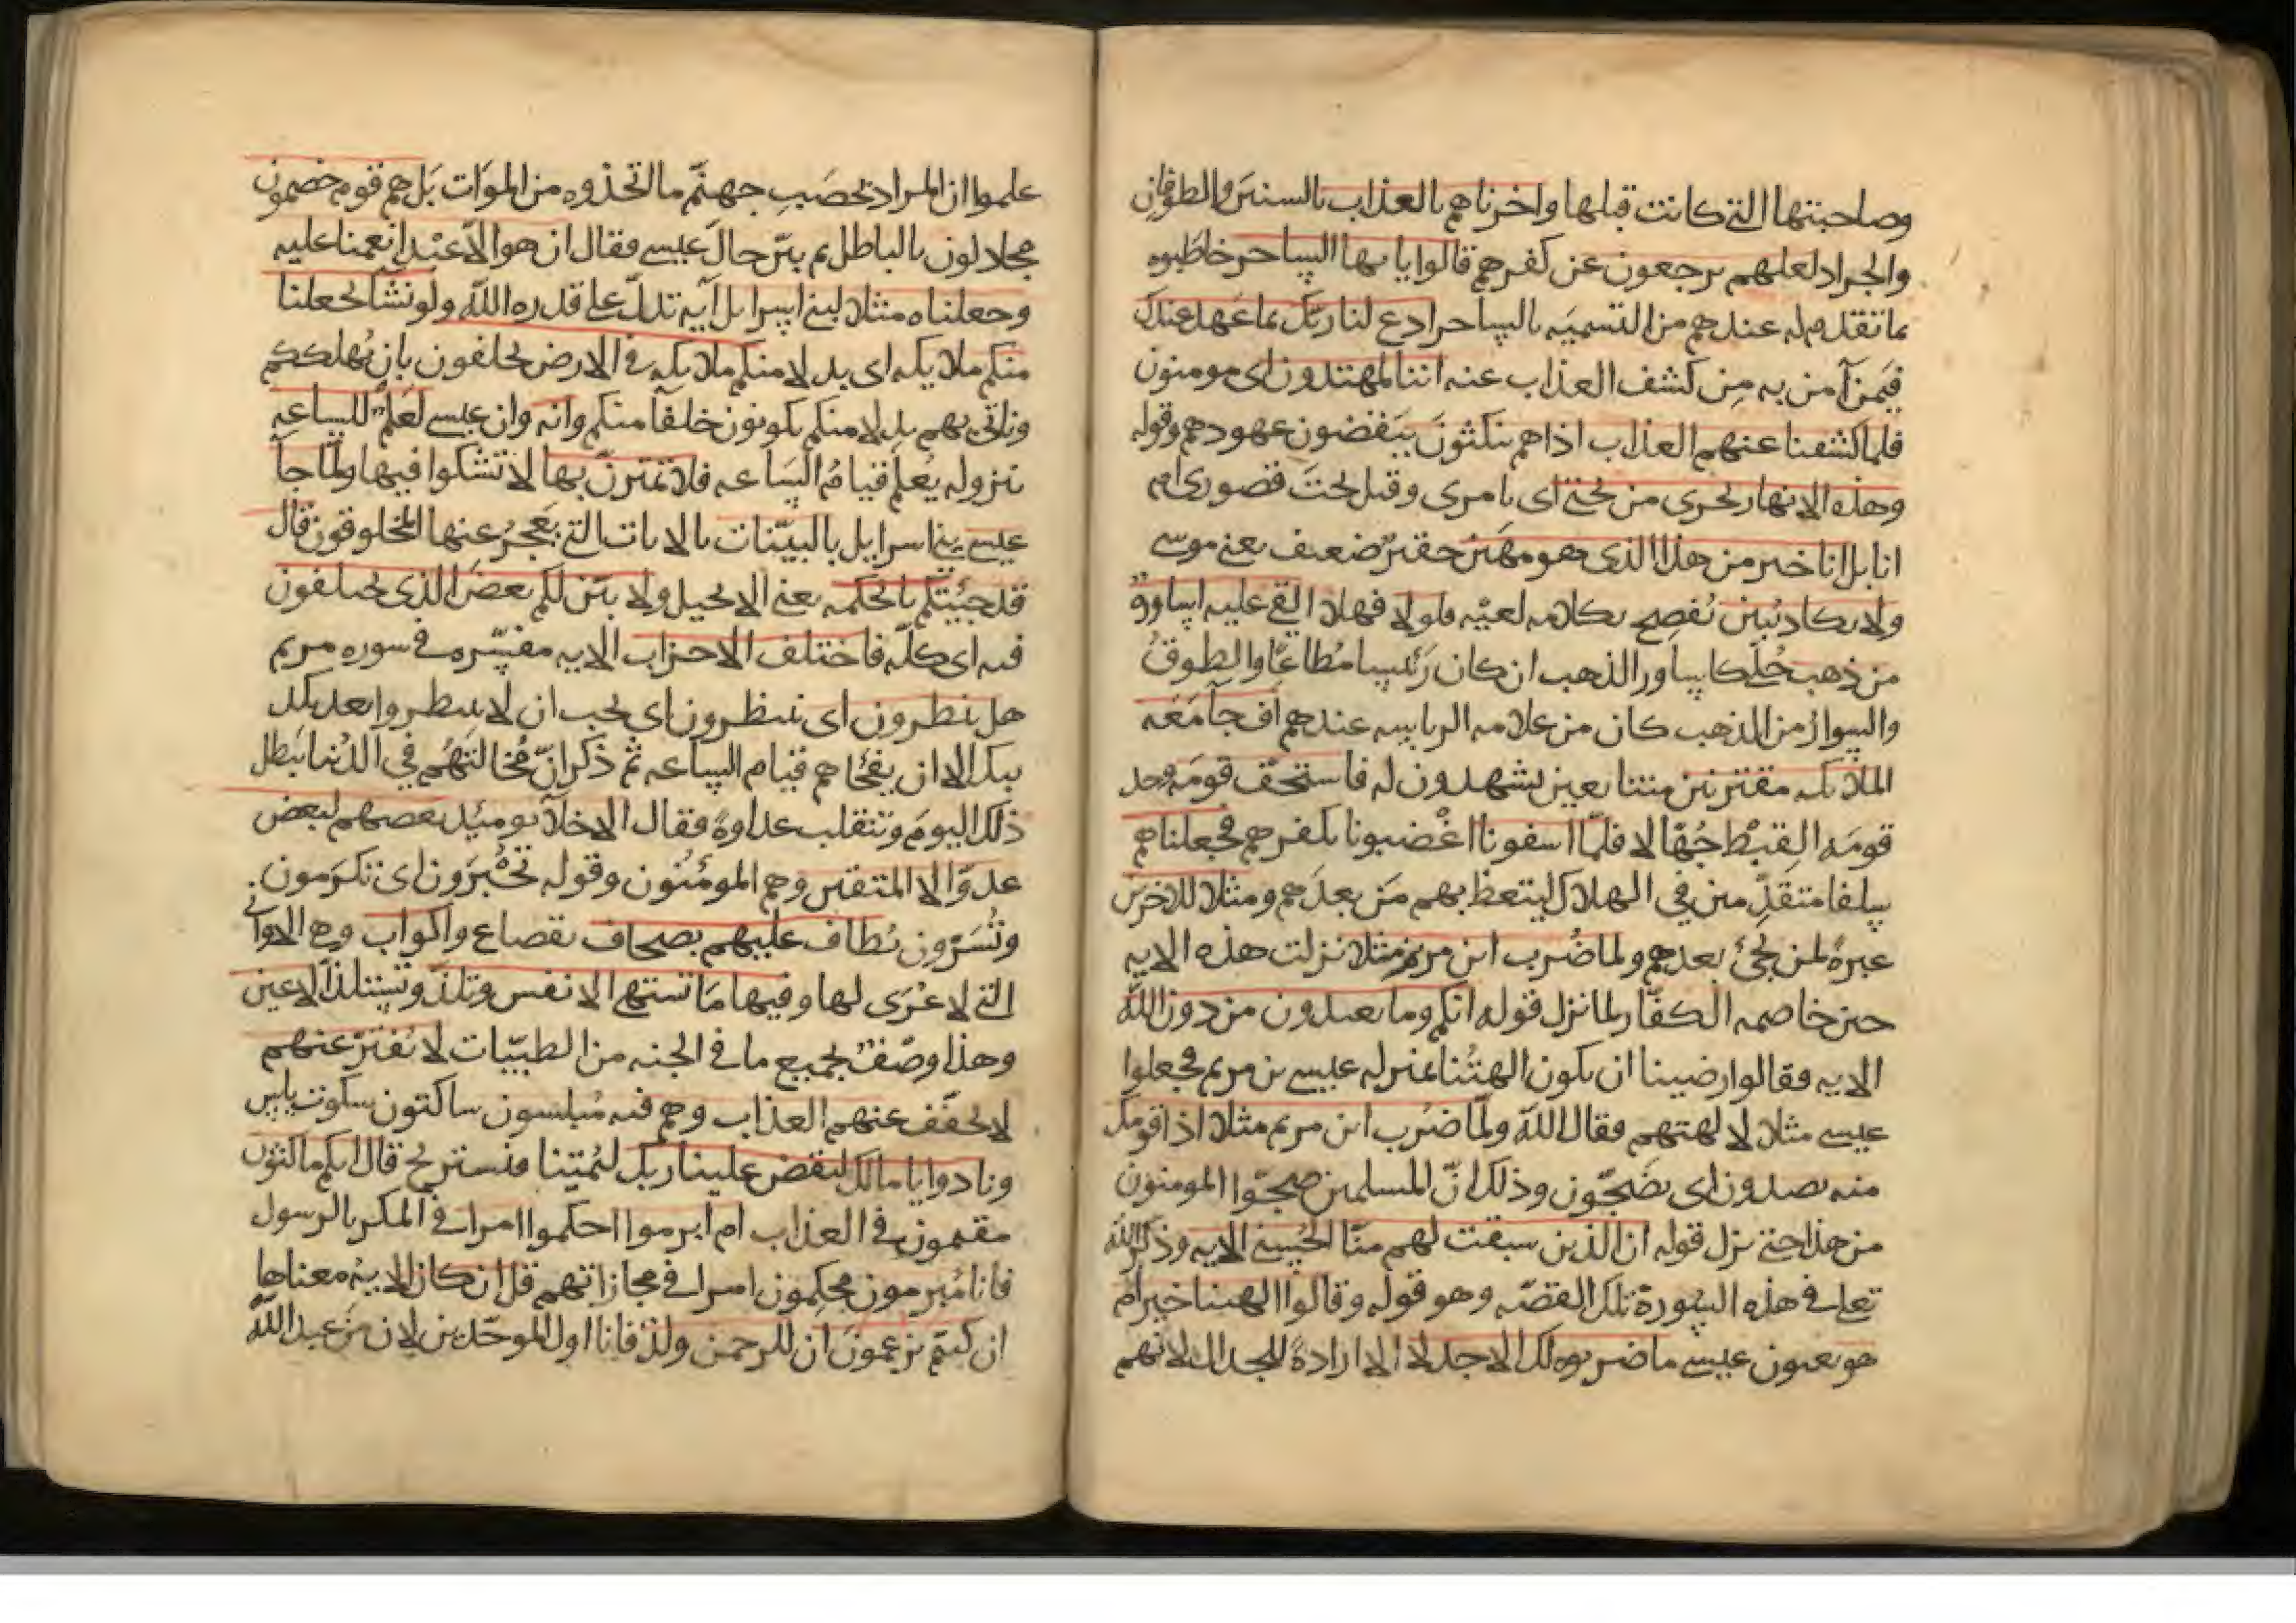 وصاحبتها التي كانت قبلها واخرناهم بالعذاب بالسنين والطوفان
والجراد لعلهم يرجعون عن كفرهم قالوا يايها الساحر خاطبوه
بما تقدم له عندهم من التسميه بالساحر ادع لنا ربك بما عهد عندك
فيمن آمن به من كشف العذاب عنه اننا لمهتدون اى مومنون
فلما كشفنا عنهم العذاب اذا هم ينكثون ينقضون عهودهم وقوله
وهذه الانهار تجرى من تحتي اى بامرى وقيل تحت قصورى ام
انا بل انا خير من هذا الذى هو مهين حقير ضعيف يعني موسى
ولا يكاد يبين يُفصِح بكلامه لعيّه فلولا فهلا القي عليه اساورة
من ذهب حُلّى كاساور الذهب ان كان رَئيسا مُطاعًا والطوقُ
والسوارُ من الذهب كان من علامه الرياسه عندهم او جآ مَعَه
الملائكه مقترنين متتابعين يشهدون له فاستخف قومَه وجد
قومَه القِبْط جُهّالا فلمّا اسفونا اغْضبونا بكفرهم فجعلناهم
سلفا متقدِّمين في الهلاك ليتعظ بهم مَن بعدَهم ومثلا للاخرين
عبرةً لمن يجئ بعدهم ولما ضُرب ابن مريم مثلا نزلت هذه الايه
حين خاصمه الكفّار لما نزل قوله انكم وما تعبدون من دون الله
الايه فقالوا رضينا ان يكون الهتُنا بمنزله عيسى بن مريم فجعلوا
عيسى مثلا لالهتهم فقال الله ولمّا ضُرب ابن مريم مثلا اذا قومك
منه يصدون اى يضَجّون وذلك انّ المسلمين ضجّوا المومنون
من هذا حتى نزل قوله ان الذين سبقت لهم منّا الحُسنى الايه وذكر الله
تعالى في هذه السُورة تلك القصّه وهو قوله وقالوا االهتنا خير ام
هو يعنون عيسى ما ضربوه لك الا جدلا الا ارادةً للجدال لانهم
علموا ان المراد بحصَبِ جهنّم ما اتخذوه من الموَات بَل هم قوم خصمون
مجادلون بالباطل ثم بيّن حالَ عيسى فقال ان هو الا عَبْد انعمنا عليه
وجعلناه مثلا لبني اسرايل آية تدلّ على قدره الله ولو نشآ لجعلنا
منكم ملايكه اى بدلا منكم ملايكه في الارض يخلفون بان نُهلككم
وناتي بهم بدلا منكم يكونون خلفآ منكم وانه وان عيسى لعَلَمٌ للساعه
بنزوله يُعلم قيامُ السَاعه فلا تمترنّ بها لا تشكوا فيها ولمّا جآ
عيسى بني اسرايل بالبيّنات بالايات التي يَعجزُ عنها المخلوقون قال
قد جئتكم بالحكمه يعني الانجيل ولابيّن لكم بعضَ الذى تختلفون
فيه اى كلّه فاختلف الاحزاب الايه مفسّره في سوره مريم
هل ينظرون اى ينتظرون اى يجب ان لا ينتظروا بعد تكذ
يبك الا ان يفجَاهم قيام الساعه ثم ذكر انّ مُخالتَهُم في الدُنيا تبطل
ذلك اليومَ وتنقلب عداوةً فقال الاخلآ يوميذ بعضهم لبعض
عدوّ الا المتقين وهم المومنُون وقوله تُحْبَرون اى تكرَمون
وتُسَرّون يُطاف عليهم بصحاف بقصاع واكواب وهي الاوآني
التي لا عُرَى لها وفيها مَا تشتهي الانفس وتلذّ وتستلذّ الاعين
وهذا وصْفٌ لجميع ما في الجنه من الطيّبات لا يُفترّ عنهم
لا يُخفّف عنهم العذاب وهم فيه مُبلسون ساكتون سكوت يايس
ونادوا يامالك ليقض علينا ربك ليُميتنا فنستريح قال انكم ماكثون
مقيمون في العذاب ام أبرموا احكموا امرا في المكر بالرسول
فانا مُبرمون محكِمون امرا في مجازاتهم قل ان كان الايه معناها
ان كنتم تزعمونَ ان للرحمن ولدٌ فانا اول الموحّدين لان مَن عبد الله